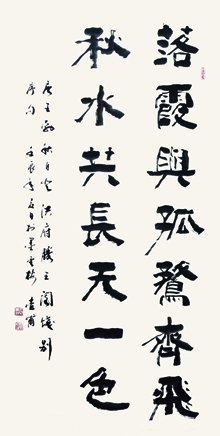 落霞與孤鶩齊飛
秋水共長天一色
唐王勃秋日登洪府滕王閣餞別
序句